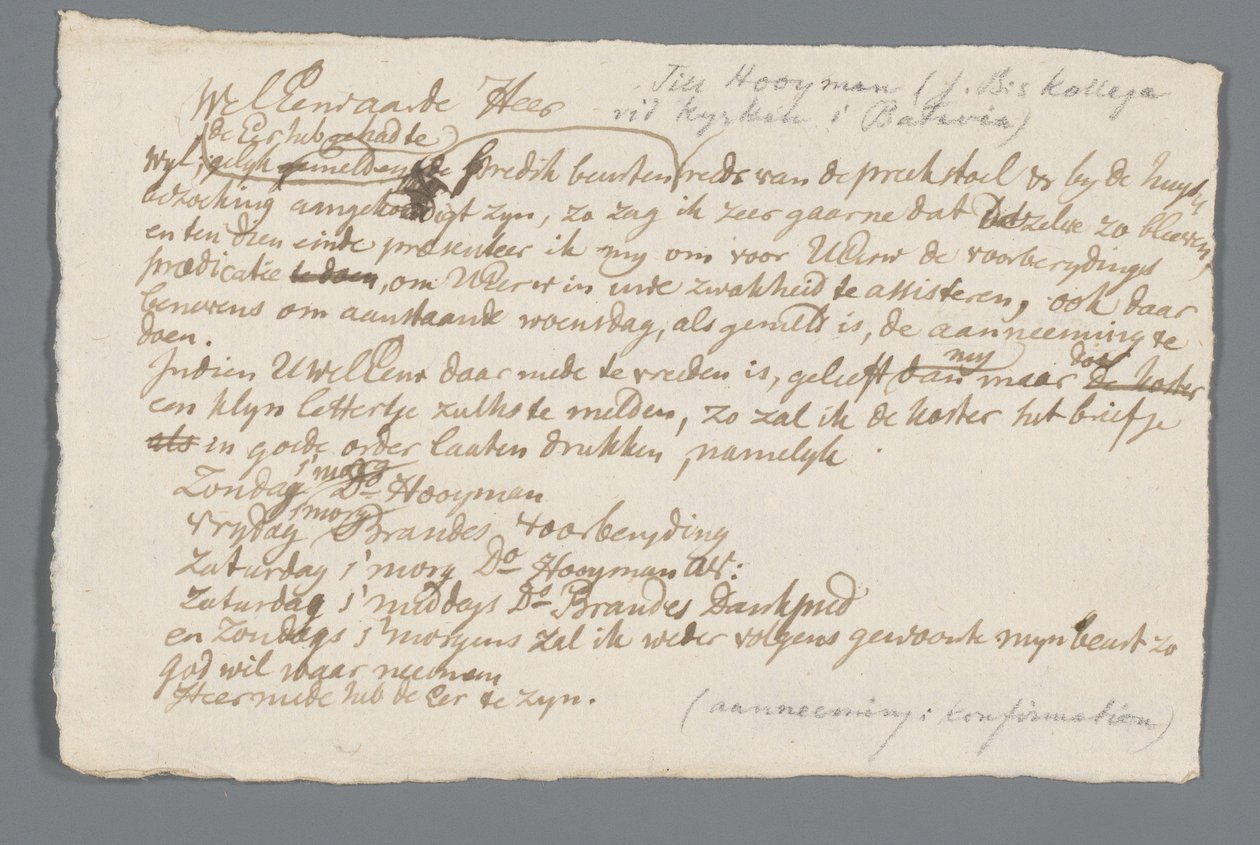 Till Hooyman (J. B:s kollega
vid kyrkan i Batavia)
WelEerwaarde Heer
de Eer heb gehad te
Wyl, gelyk gemelden, de predik beurten reeds van de preekstoel & by de huys
bezoeking aangekondigt zyn, zo zag ik zeer gaarne dat Dezelve zo bleeven,
en ten dien einde præsenteer ik my om voor UEerw de voorberydings
prædicatie te doen, om UEerw in uwe zwakheid te assisteren, ook daar
benevens om aanstaande woensdag, als gemelt is, de aanneeming te
doen.
my door
Indien UWelEerw daar mede te vreeden is, gelieft dan maar de koster
een klyn lettertje zulks te melden, zo zal ik de koster het briefje
als in goede order laaten drukken, namelyk
s'morg
Zondag Do Hooyman
s'morg
vrydag Brandes voorberyding
Zaturdag s'morg Do Hooyman AV:
Zaturdag s'middags Do Brandes Dankpred
en Zondags s'morgens zal ik weder volgens gewoonte myn beurt zo
God wil waar neemen
Heermede heb de Eer te zyn.
(aanneeming: konfirmation)